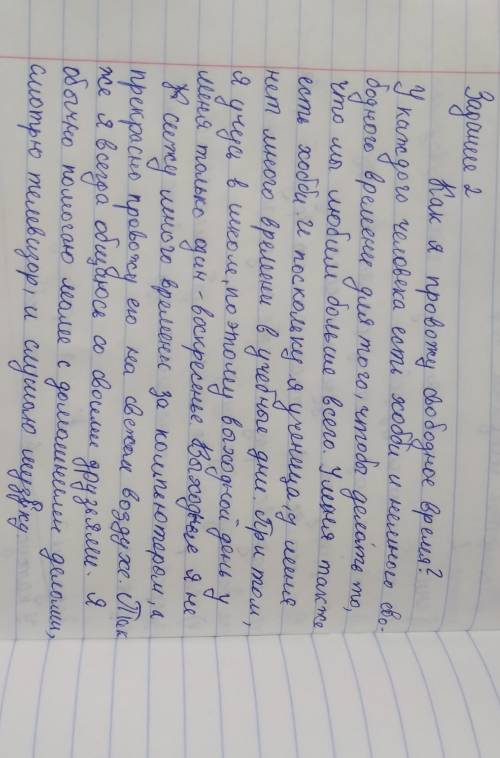 Задание 2
Как я провожу свободное время?
У каждого человека есть хобби и немного сво-
бодного времени для того, чтобы делать то,
что мы любим больше всего. У меня также
есть хобби. И поскольку я ученица, у меня
нет много времени в учебные дни. При том,
я учусь в школе, поэтому выходной день у
меня только один - воскресенье. Выходные я не
сижу много времени за компьютером, а
прекрасно провожу его на свежем воздухе. Так
же я всегда общаюсь со своими друзьями. Я
обычно помогаю маме с домашними делами,
смотрю телевизор, и слушаю музыку